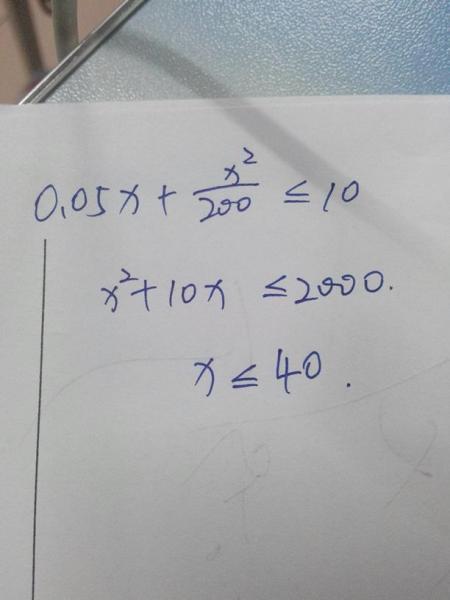 0.05x + x²/200 ≤ 10
x² + 10x ≤ 2000.
x ≤ 40.